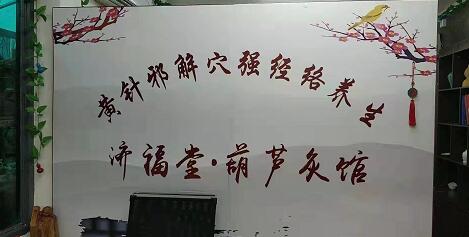 黄针邪解穴强经络养生
济福堂·葫芦灸馆